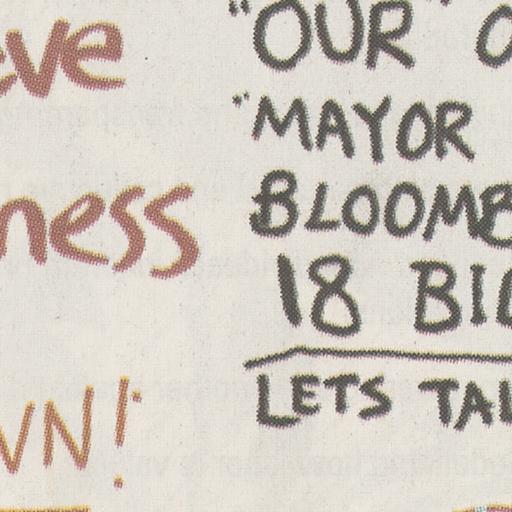 eve
ness
WN!
"OUR" O
"MAYOR
BLOOMB
18 BIL
LETS TAL